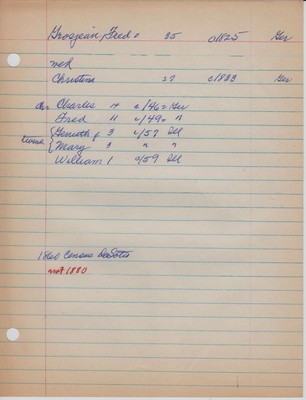 Grosjean, Fred 35 c1825 Ger
wed
Christina 27 c1833 Ger
chr Charles 14 c/46 = Ger
Fred 11 c/49 = "
twins { f 3 c/57 Ill
Mary 3 " "
William 1 c/59 Ill
1860 Census DeSoto
not 1880